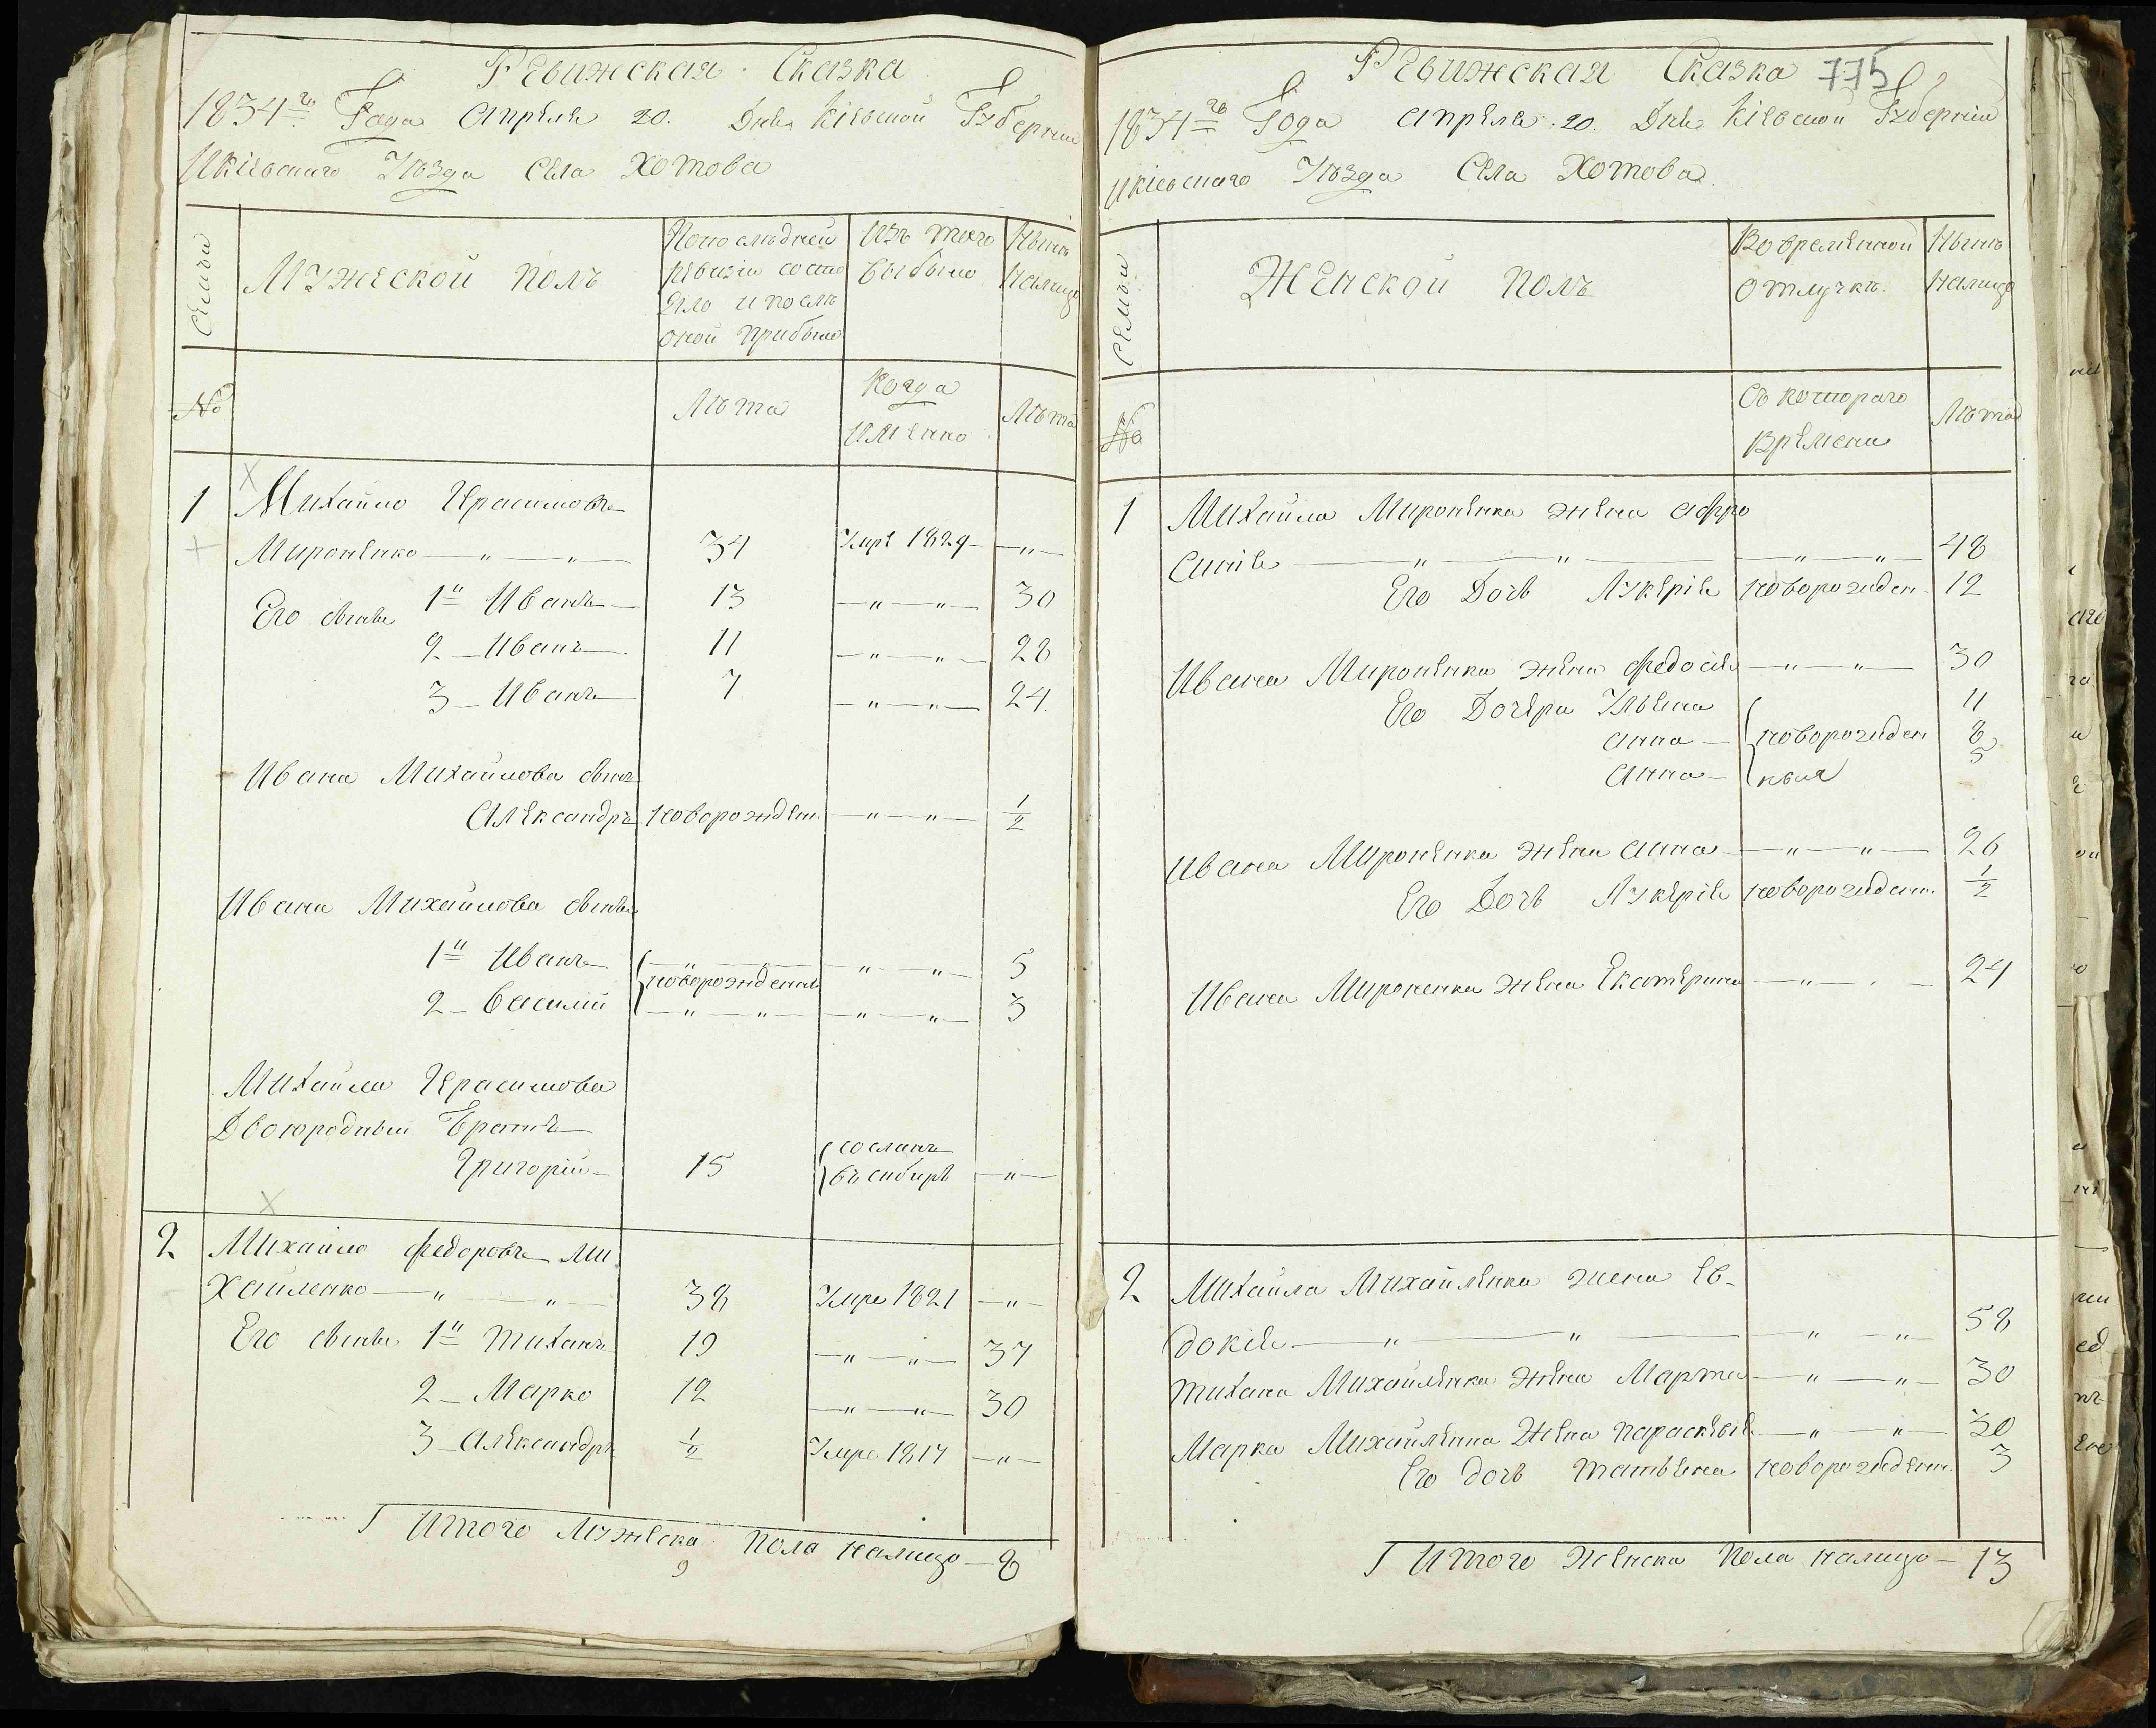 Ревижская Сказка
1834го Года Апреля 20. Дня Кіевской Губерніи
И Кіевскаго Уѣзда Села Хотова
Семьи
Мужеской полъ
По последней
ревизіи состо
яло и после
оной прибыло
Изъ того
выбыло
Нынѣ
налицо
№
Лѣта
Когда
именно
Лѣта
1 Михайло Герасимовъ
Мироненко — " — " — 34 Умре 1829 — " —
Его сыны 1й Иванъ — 13 — " — " — 30
2 — Иванъ — 11 — " — " — 28
3 — Иванъ 7 — " — " — 24
Ивана Михайлова сынъ
Александръ новорожден. — " — " — 1/2
Ивана Михайлова сыны
1й Иванъ — " — " — " — 5
новорожденны
2 — Василий — " — " — " — " — 3
Михайла Герасимова
Двоюродный братъ
Григорій — 15 сосланъ
въ сибирь — " —
2 Михайло Федоровъ Ми
хайленко — " — " — 38 Умре 1821 — " —
Его сыны 1й Тиханъ 19 — " — " — 37
2 — Марко 12 — " — " — 30
3 — Александръ 1/2 Умре 1817 — " —
Итого мужеска пола налицо — 8
9
Ревижская Сказка 775
1834го Года Апреля 20. Дня Кіевской Губерніи
И Кіевскаго Уѣзда Села Хотова
Семьи
Женской полъ
Во временной
отлучкѣ.
Нынѣ
налицо
№
Съ котораго
времени
Лѣта
1 Михайла Мироненка жена Афро
синія — " — " — " — " — 48
Его Дочь Лукерія новорожден. 12
Ивана Мироненка жена Федосія — " — " — 30
Его Дочери Ульяна 11
Анна — новорожден 8
Анна — ныя 5
Ивана Мироненка жена Анна — " — " — 26
Его Дочь Лукерія новорожден. 1/2
Ивана Мироненка жена Екатерина — " — " — 24
2 Михайла Михайленка жена Ев-
докія — " — " — " — " — 58
Тихана Михайленка жена Марта — " — " — 30
Марка Михайленка жена Параскевія — " — " — 30
Его дочь Татьяна новорожден. 3
Итого женска пола налицо — 13